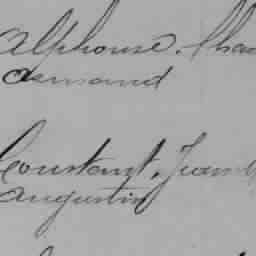 Alphonse. Cha
Armand
Constant. Jean
Augustin